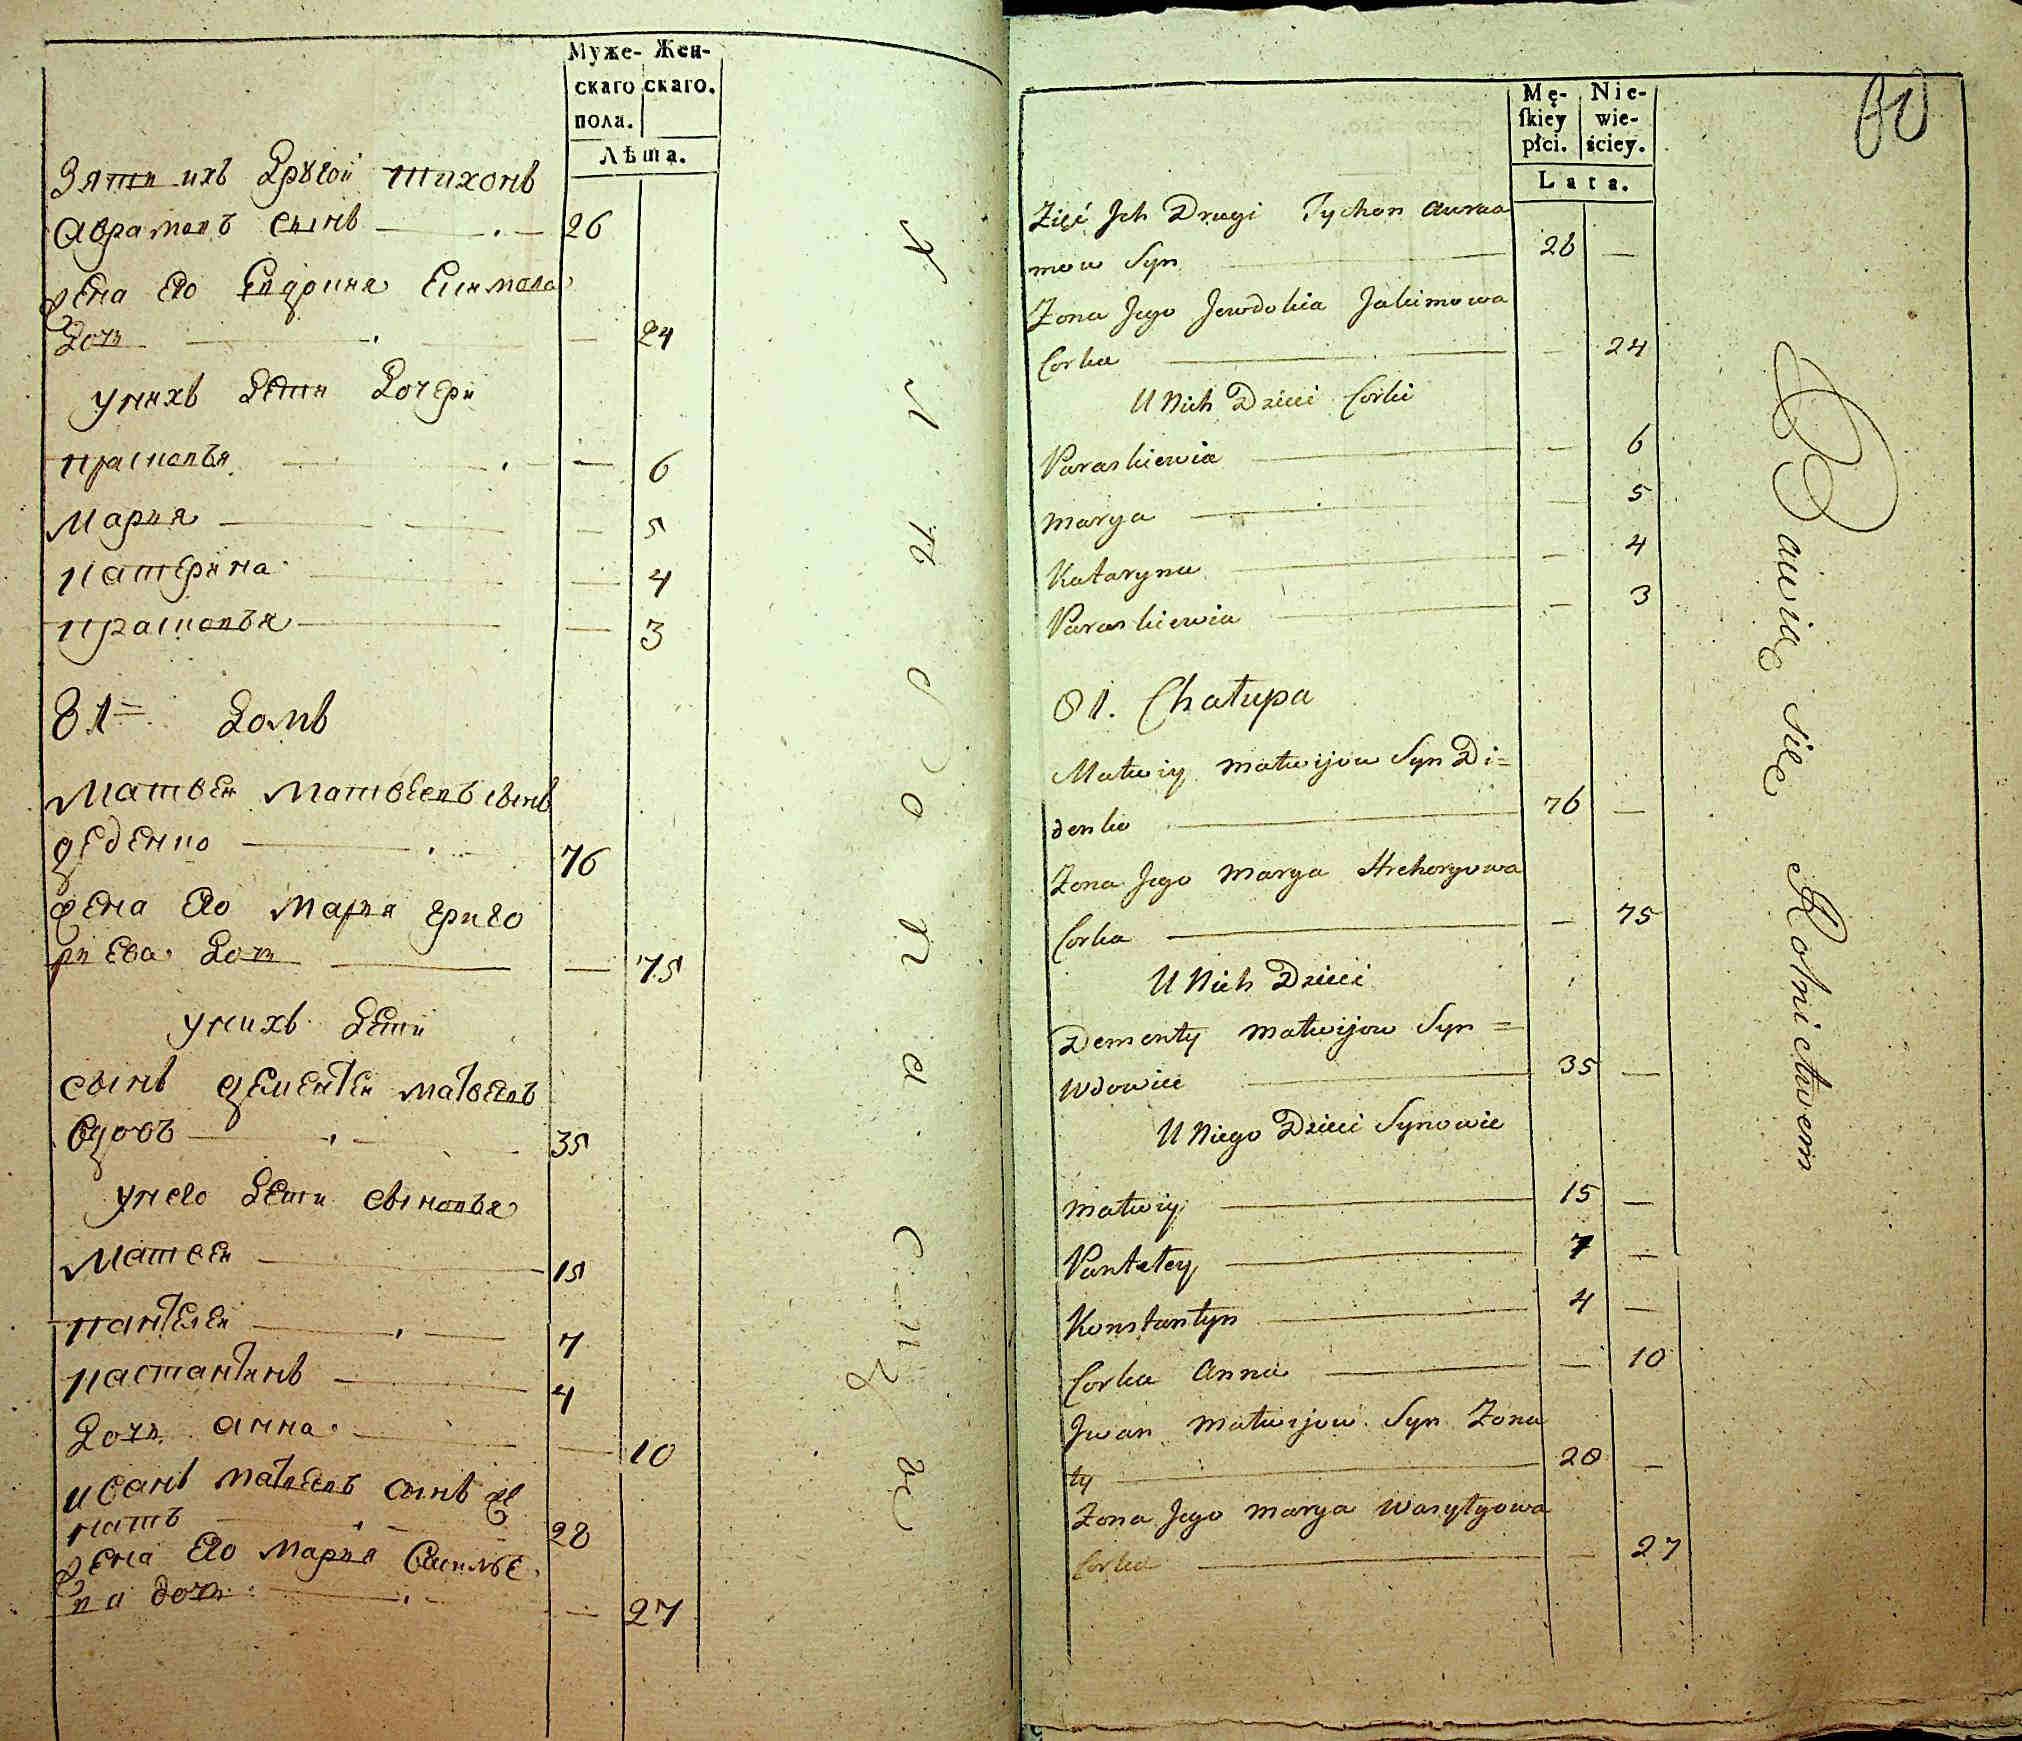 Муже- Жен-
скаго скаго.
пола.
Лѣта.
Зяти ихъ другой Тихонъ
Аврамовъ сынъ 26
жена его
дочь 24
у нихъ дети дочери
Прасковья 6
Мария 5
Катерина 4
Прасковья 3
81 = домъ
Матвей Матвеевъ сынъ
деденко 76
жена его Мария Григо
риева дочь 75
у нихъ дети
сынъ Дементей Матвеевъ
вдовъ 35
у него дети сыновья
Матвей 15
Пантелей 7
Кастантинъ 4
дочь Анна 10
Иванъ Матвеевъ сынъ же
натъ 28
жена его Мария Василье
ва дочь 27
Mę- Nie-
skiey wie-
płci. ściey.
Lata.
80
Zięć Jch Drugi Tychon Awraa
mow Syn 26 —
Zona Jego Jewdokia Jakimowa
Corka — 24
U Nich Dzieci Corki
Paraskiewia — 6
Marya — 5
Kataryna — 4
Paraskiewia — 3
81. Chałupa
Matwiy Matwijow Syn Di=
denko 76 —
Zona Jego Marya Hrehoryowa
Corka — 75
U Nich Dzieci
Dementy Matwijow Syn =
Wdowiec 35 —
U Niego Dzieci Synowie
Matwiy 15 —
Pantełey 7 —
Konstantyn 4 —
Corka Anna — 10
Jwan Matwijow Syn Zona
ty 28 —
Zona Jego Marya Wasyłyowa
Corka — 27
Bawią się Rolnictwem